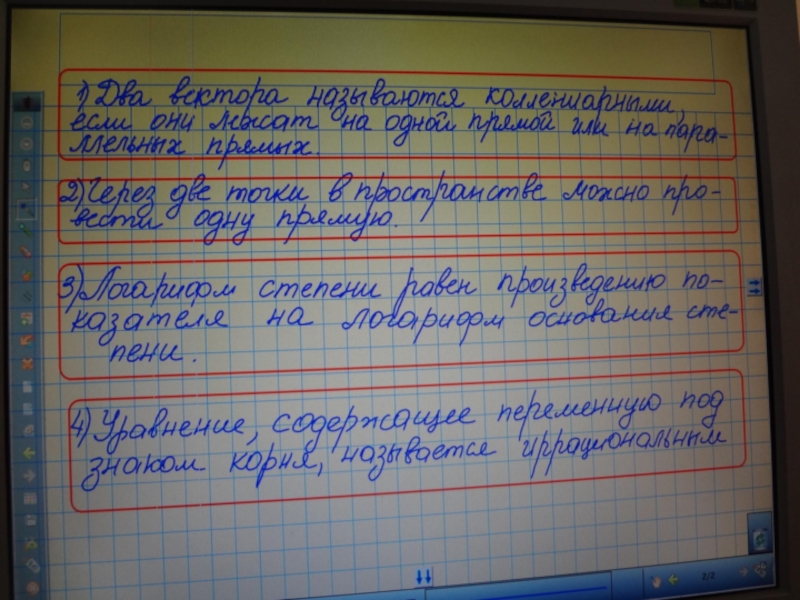 1) Два вектора называются коллениарными,
если они лежат на одной прямой или на пара-
ллельных прямых.
2) Через две точки в пространстве можно про-
вести одну прямую.
3) Логарифм степени равен произведению по-
казателя на логарифм основания сте-
пени.
4) Уравнение, содержащее переменную под
знаком корня, называется иррациональным
2/2